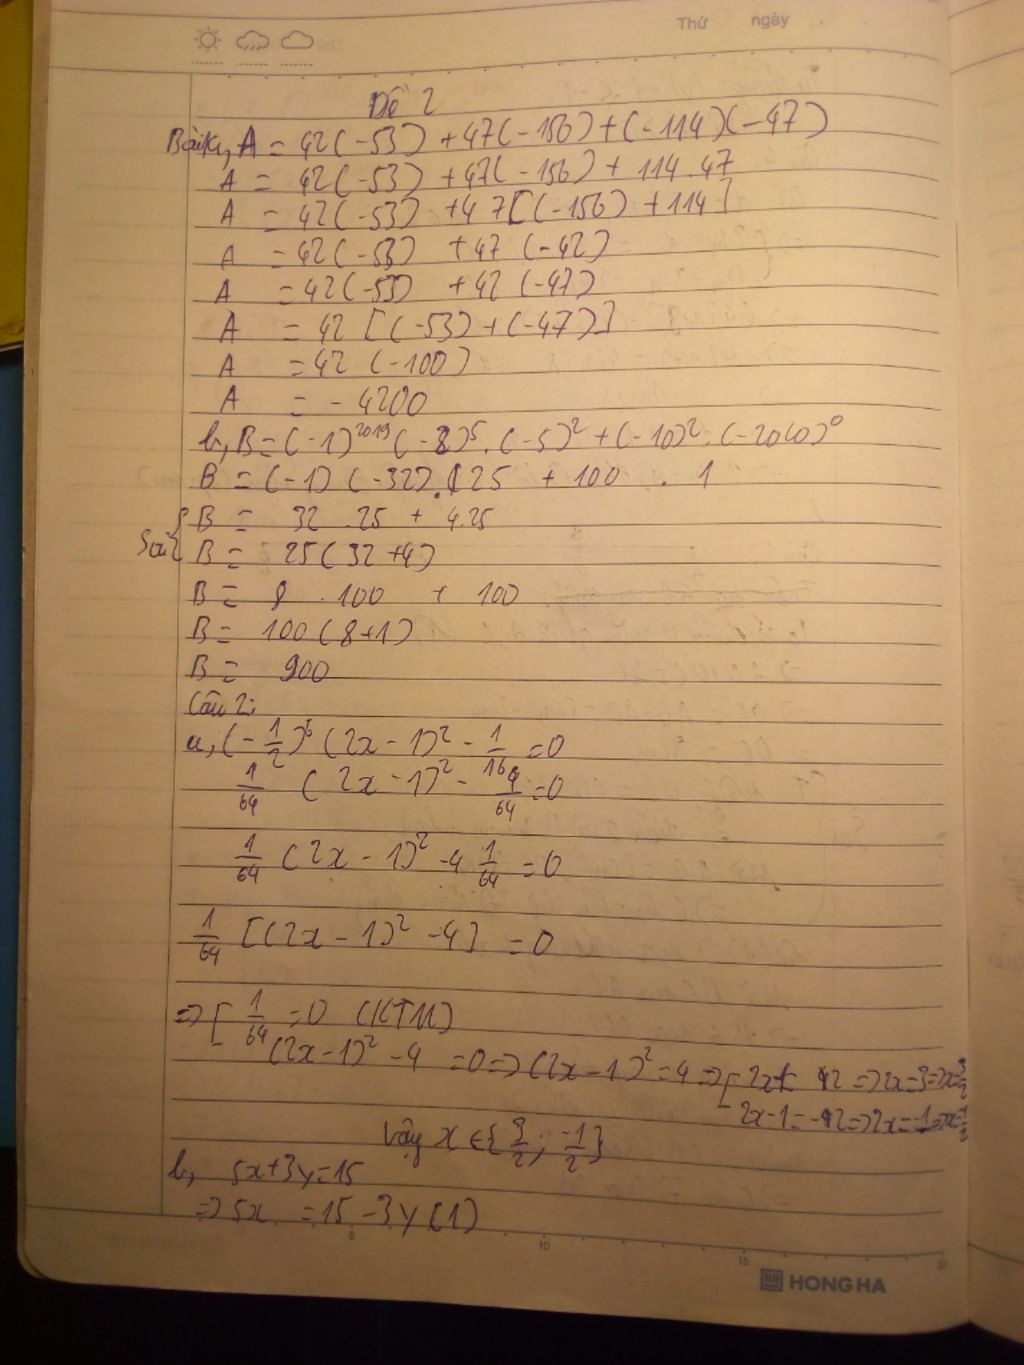 Thứ ngày
Đề 2
Bài 1, a, A = 42(-53) + 47(-156) + (-114)(-47)
A = 42(-53) + 47(-156) + 114.47
A = 42(-53) + 47[(-156) + 114]
A = 42(-53) + 47 (-42)
A = 42(-53) + 42 (-47)
A = 42 [(-53) + (-47)]
A = 42 (-100)
A = - 4200
b, B = (-1)^2019 (-2)^5 . (-5)^2 + (-10)^2 . (-2020)^0
B = (-1) (-32) . 25 + 100 . 1
B = 32 . 25 + 4.25
Sai { B = 25 (32 + 4)
B = 8 . 100 + 100
B = 100 (8+1)
B = 900
Câu 2:
a, (-1/2)^6 (2x - 1)^2 - 1/16 = 0
1/64 (2x - 1)^2 - 4/64 = 0
1/64 (2x - 1)^2 - 4 1/64 = 0
1/64 [(2x - 1)^2 - 4] = 0
=> [ 1/64 = 0 (KTM)
(2x-1)^2 - 4 = 0 => (2x - 1)^2 = 4 => [ 2x-1 = 2 => 2x = 3 => x = 3/2
2x - 1 = -2 => 2x = -1 => x = -1/2
Vậy x ∈ {3/2; -1/2}
b, 5x + 3y = 15
=> 5x = 15 - 3y (1)
5 10 15 20
HH HONG HA